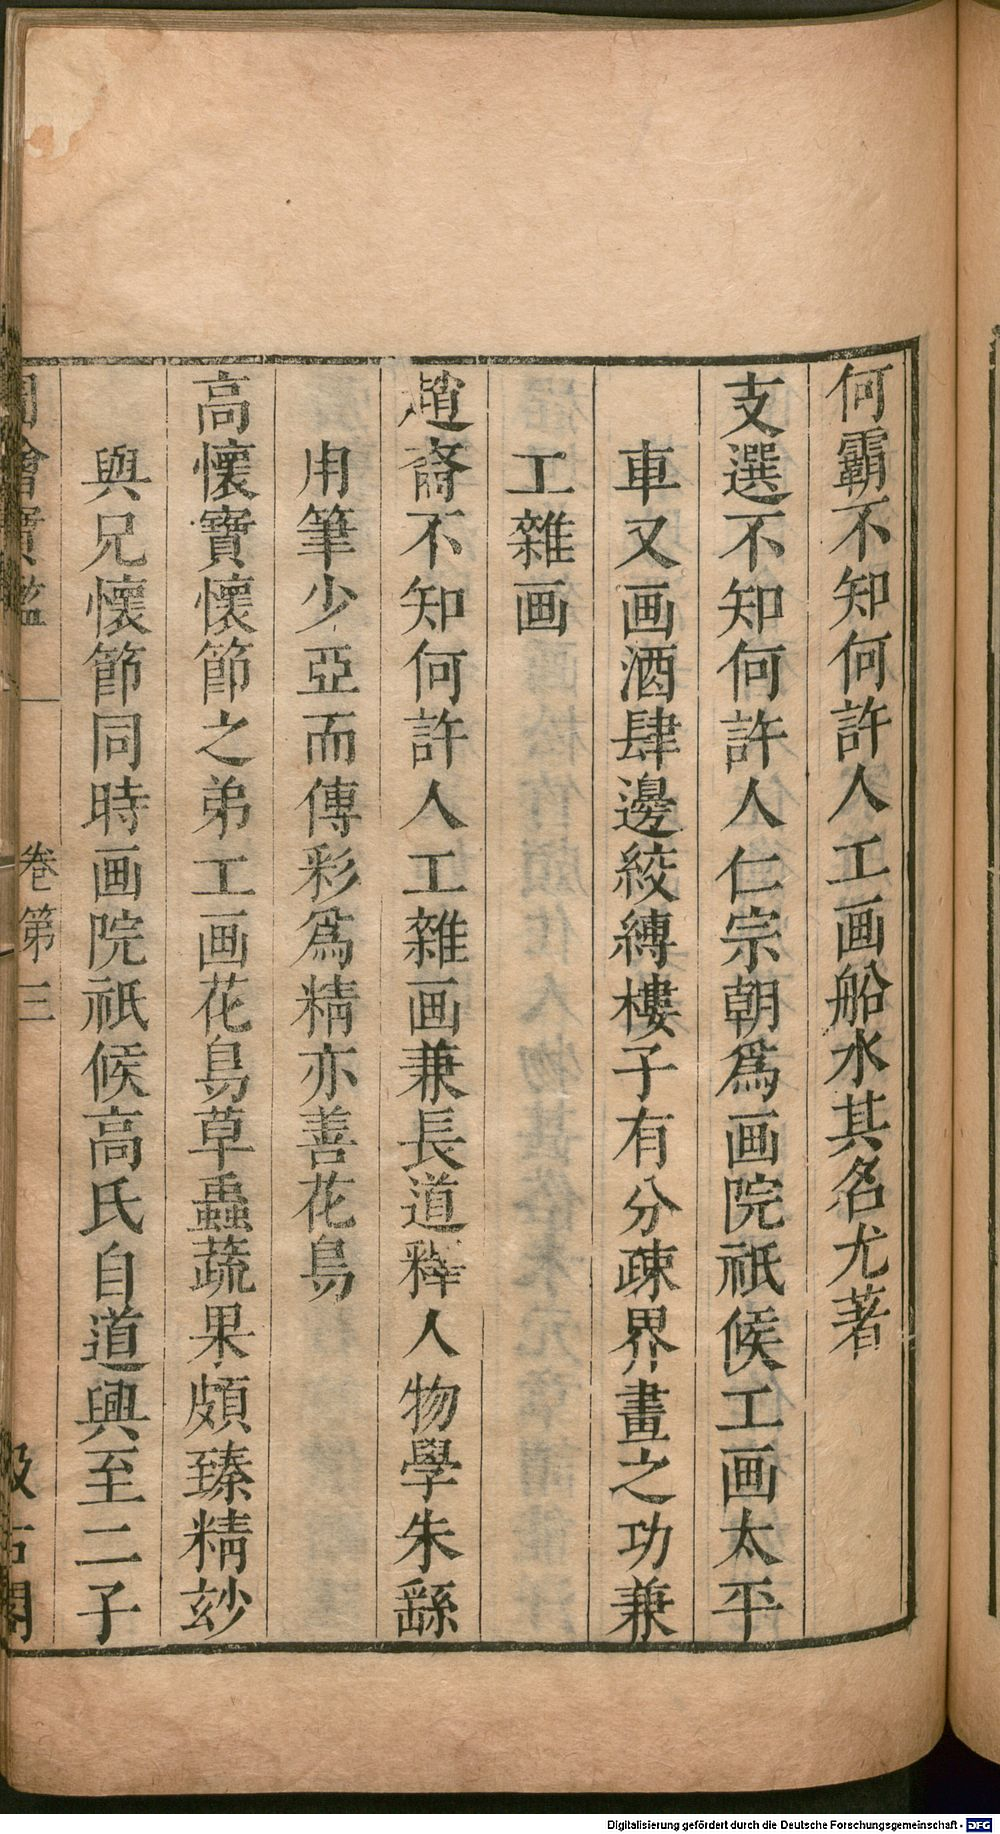 何霸不知何許人工画船水其名尤著
支選不知何許人仁宗朝爲画院祇候工画太平
車又画酒肆邊絞縛樓子有分疎界畫之功兼
工雜画
趙裔不知何許人工雜画兼長道釋人物學朱繇
用筆少亞而傳彩爲精亦善花鳥
高懷寶懷節之弟工画花鳥草蟲蔬果頗臻精玅
與兄懷節同時画院祇候高氏自道興至二子
圖繪寶鑑 卷第三 汲古閣
Digitalisierung gefördert durch die Deutsche Forschungsgemeinschaft - DFG